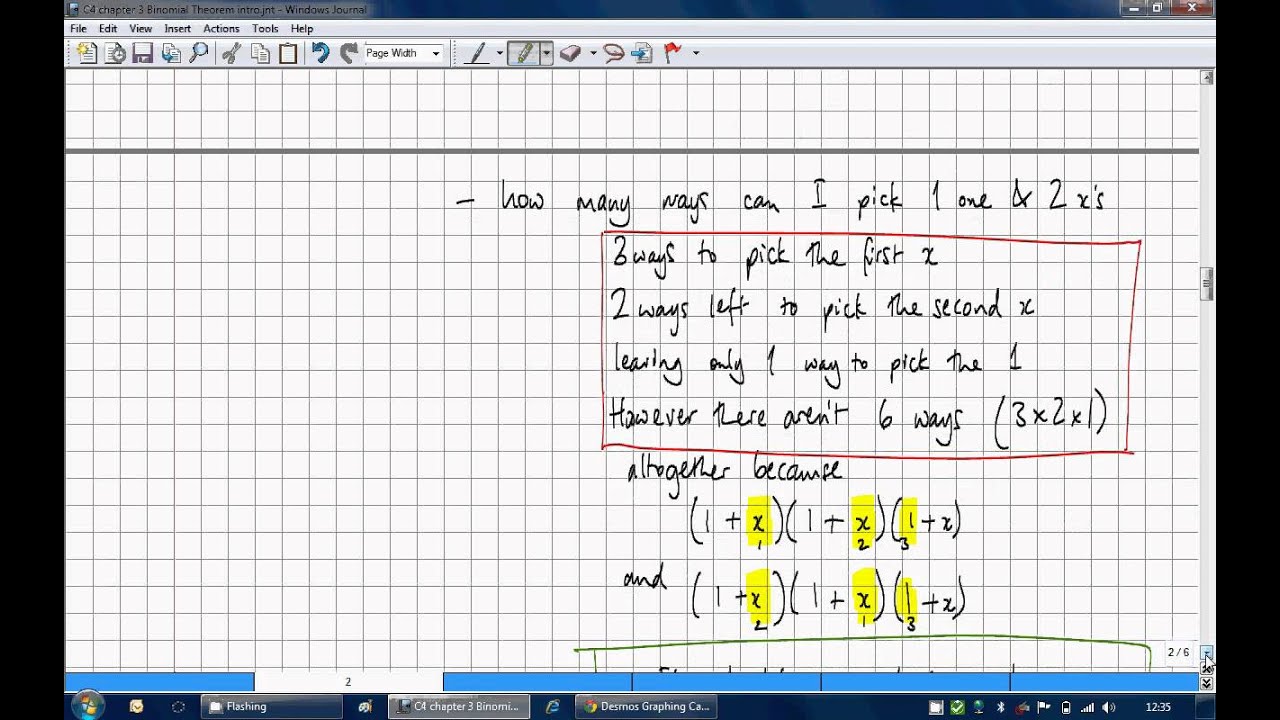 C4 chapter 3 Binomial Theorem intro.jnt - Windows Journal
File Edit View Insert Actions Tools Help
Page Width
- how many ways can I pick 1 one & 2 x's
3 ways to pick the first x
2 ways left to pick the second x
leaving only 1 way to pick the 1
However there aren't 6 ways (3×2×1)
altogether because
(1 + x)(1 + x)(1 + x)
1 2 3
and (1 + x)(1 + x)(1 + x)
2 1 3
2 / 6
2
Flashing
C4 chapter 3 Binomi...
Desmos Graphing Ca...
12:35